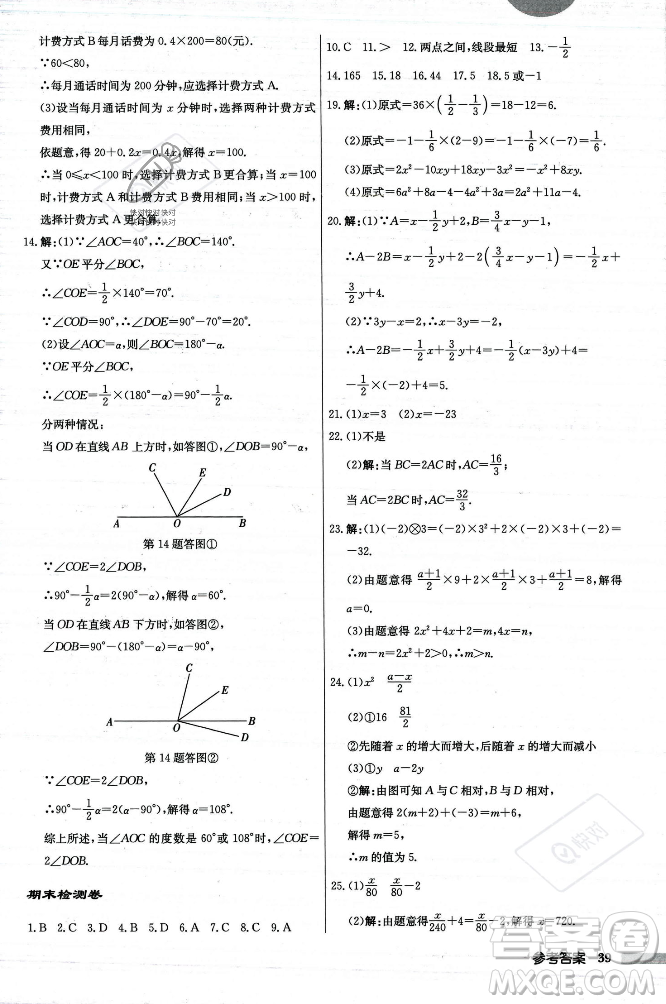 计费方式 B 每月话费为 0.4×200=80(元).
∵60<80,
∴每月通话时间为 200 分钟,应选择计费方式 A.
(3)设当每月通话时间为 x 分钟时,选择两种计费方式费用相同,
依题意,得 20+0.2x=0.4x,解得 x=100.
∴当 0≤x<100 时,选择计费方式 B 更合算;当 x=100
时,计费方式 A 和计费方式 B 费用相同;当 x>100
时,选择计费方式 A 更合算.
14.解:(1)∵∠AOC=40°,∴∠BOC=140°.
又∵OE 平分∠BOC,
∴∠COE=1/2×140°=70°.
∵∠COD=90°,∴∠DOE=90°-70°=20°.
(2)设∠AOC=α,则∠BOC=180°-α.
∵OE 平分∠BOC,
∴∠COE=1/2×(180°-α)=90°-1/2α.
分两种情况:
当 OD 在直线 AB 上方时,如答图①,∠DOB=90°-α,
C E D A O B
第 14 题答图①
∵∠COE=2∠DOB,
∴90°-1/2α=2(90°-α),解得 α=60°.
当 OD 在直线 AB 下方时,如答图②,
∠DOB=90°-(180°-α)=α-90°.
C E A O B D
第 14 题答图②
∵∠COE=2∠DOB,
∴90°-1/2α=2(α-90°),解得 α=108°.
综上所述,当∠AOC 的度数是 60°或 108°时,∠COE=
2∠DOB.
期末检测卷
1.B 2.C 3.D 4.B 5.A 6.D 7.C 8.C 9.A
10.C 11.> 12.两点之间,线段最短 13.-1/2
14.165 15.18 16.44 17.5 18.5 或-1
19.解:(1)原式=36×(1/2-1/3)=18-12=6.
(2)原式=-1-1/6×(2-9)=-1-1/6×(-7)=1/6.
(3)原式=2x²-10x-6.
(4)原式=6a²+8a.
20.解:(1)∵A=x-1/2y+2,B=3/4x-y-1,
∴A-2B=x-1/2y+2-2(3/4x-y-1)=-1/2x+
3/2y+4.
(2)∵3y-x=2,∴x-3y=-2,
∴A-2B=-1/2x+3/2y+4=-1/2(x-3y)+4=
-1/2×(-2)+4=5.
21.(1)x=3 (2)x=-23
22.(1)不是
(2)解:当 BC=2AC 时,AC=16/3;
当 AC=2BC 时,AC=32/3.
23.解:(1)(-2)⊗3=(-2)×3²+2×(-2)×3+(-2)=
-32.
(2)由题意得 a+1/2×9+2×a+1/2×3+a+1/2=8,解得
a=0.
(3)由题意得 2x²+4x+2=m,4x=n,
∴m-n=2x²+2>0,∴m>n.
24.(1)x² a-x/2
(2)①16 81/2
②先随着 x 的增大而增大,后随着 x 的增大而减小
(3)①y a-2y
②解:由图可知 A 与 C 相对,B 与 D 相对,
由题意得 2(m+4)+(-m)=13,
解得 m=5,
∴m 的值为 5.
25.(1)x/80 x/80-2
(2)解:由题意得 x/240+4=x/80-2,解得 x=720.
参考答案 39
快对
答案圈
MXQE.COM